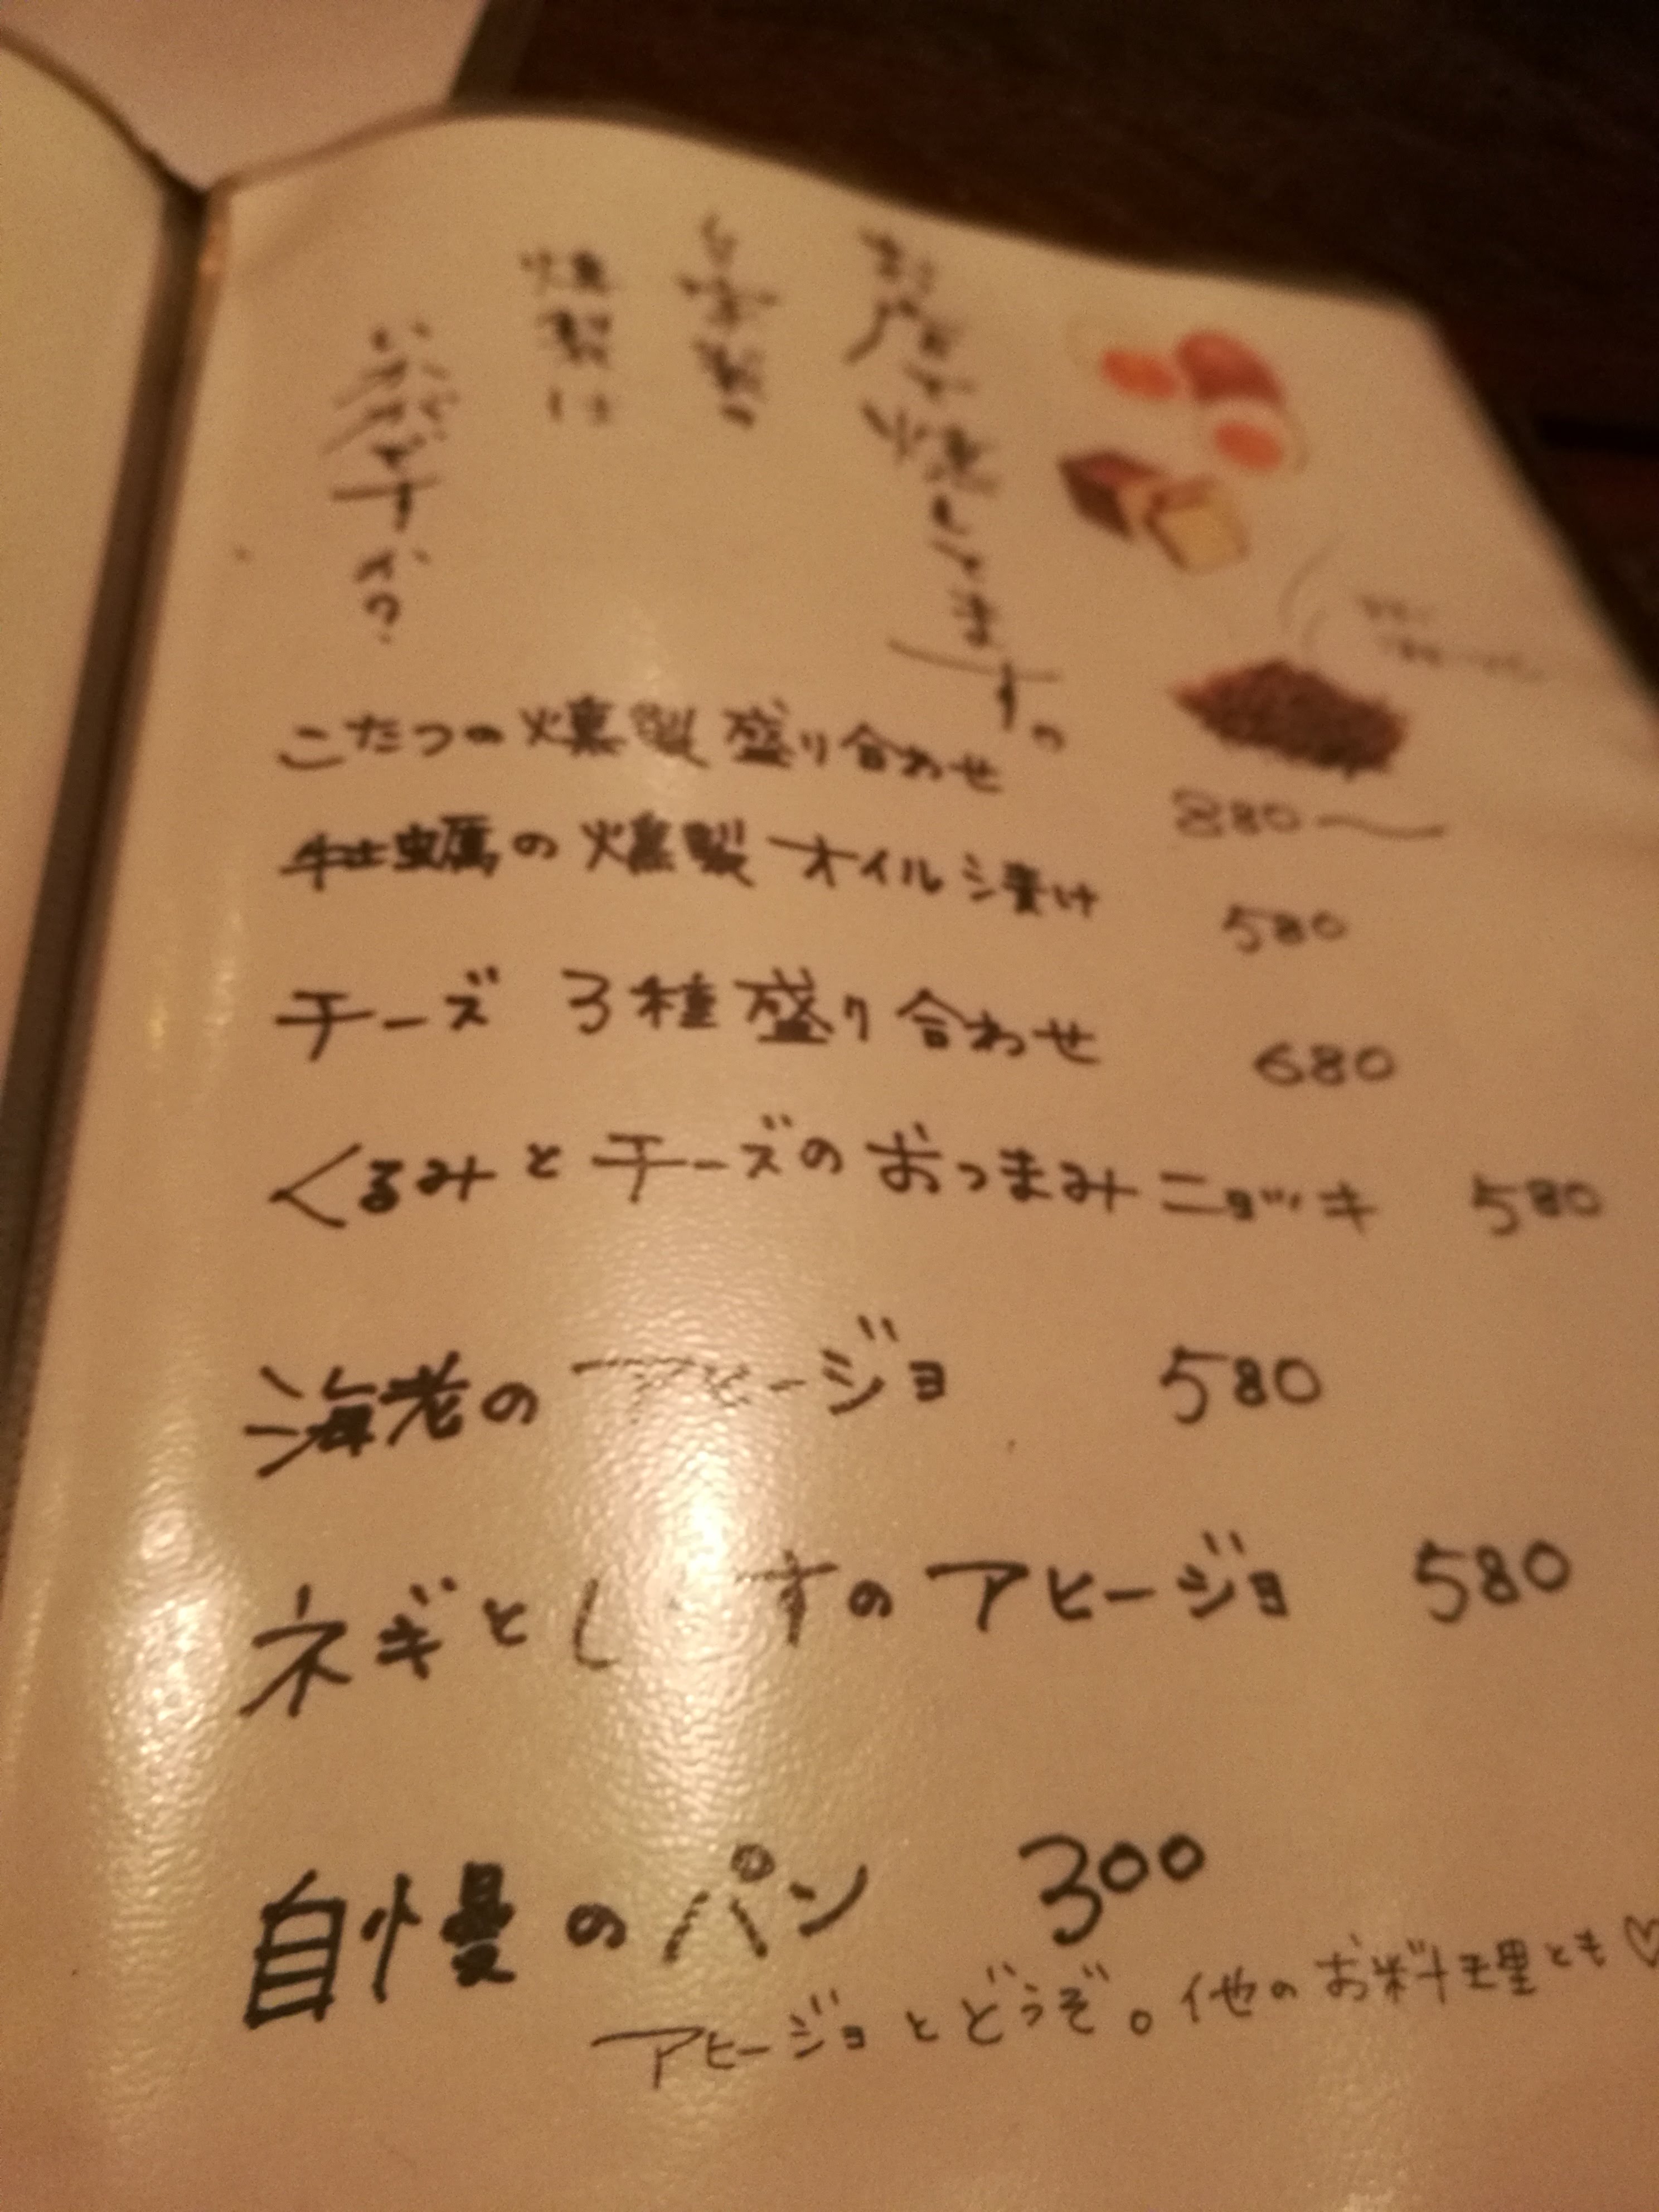 お店で燻してます。
自家製の
燻製は
いかがですか?
こたつの燻製盛り合わせ 880〜
牡蠣の燻製オイル漬け 580
チーズ 3種盛り合わせ 680
くるみとチーズのおつまみニョッキ 580
海老のアヒージョ 580
ネギとしらすのアヒージョ 580
自慢のパン 300
アヒージョとどうぞ。他のお料理とも♡